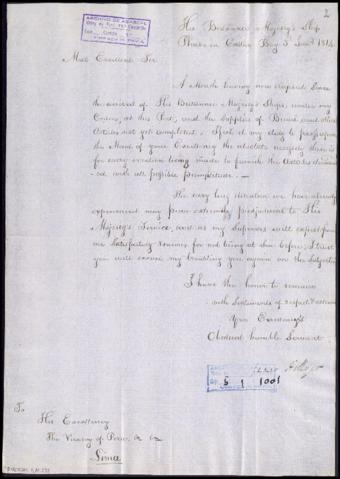 2
His Britannic Majesty's Ship
Phoebe in Callao Bay 5 1814
Most Excellent Sir
A Month having now elapsed since
the arrival of His Britannic Majesty's Ships, under my
Orders, at this Port, and the Supplies of Bread and other
Articles not yet completed. I feel it my duty to
the Mind of your Excellency the absolute necessity there is
for every exertion being made to furnish the Articles demand
-ed with all possible promptitude. —
The very long detention we have already
experienced may prove extremely prejudicial to His
Majesty's Service, and as my Superiors will expect from
me Satisfactory reasons for not being at Sea before, I trust
you will excuse my troubling you again on the Subject
I have the honor to remain
with Sentiments of respect
Your Excellency's
Obedient humble Servant
5 1 1001
To
His Excellency
The Viceroy of Peru, &c &c
Lima